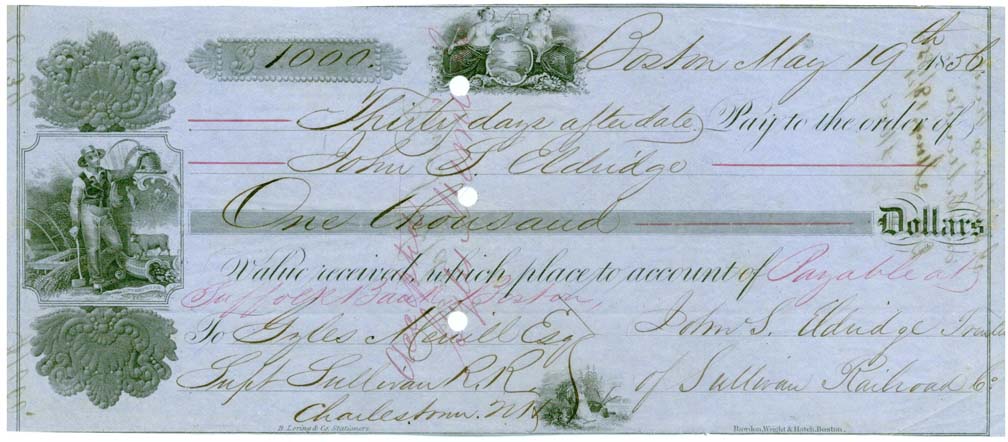 $ 1000. Boston May 19th 1856
Thirty days after date Pay to the order of
John S. Eldridge
One thousand Dollars
Value received, which place to account of Payable at
Suffolk Bank Boston,
To Gyles Merrill Esq John S. Eldridge
Supt Sullivan R.R. of Sullivan Railroad Co
Charlestown. N.H.
B. Loring & Co. Stationers. Rawdon, Wright & Hatch, Boston.